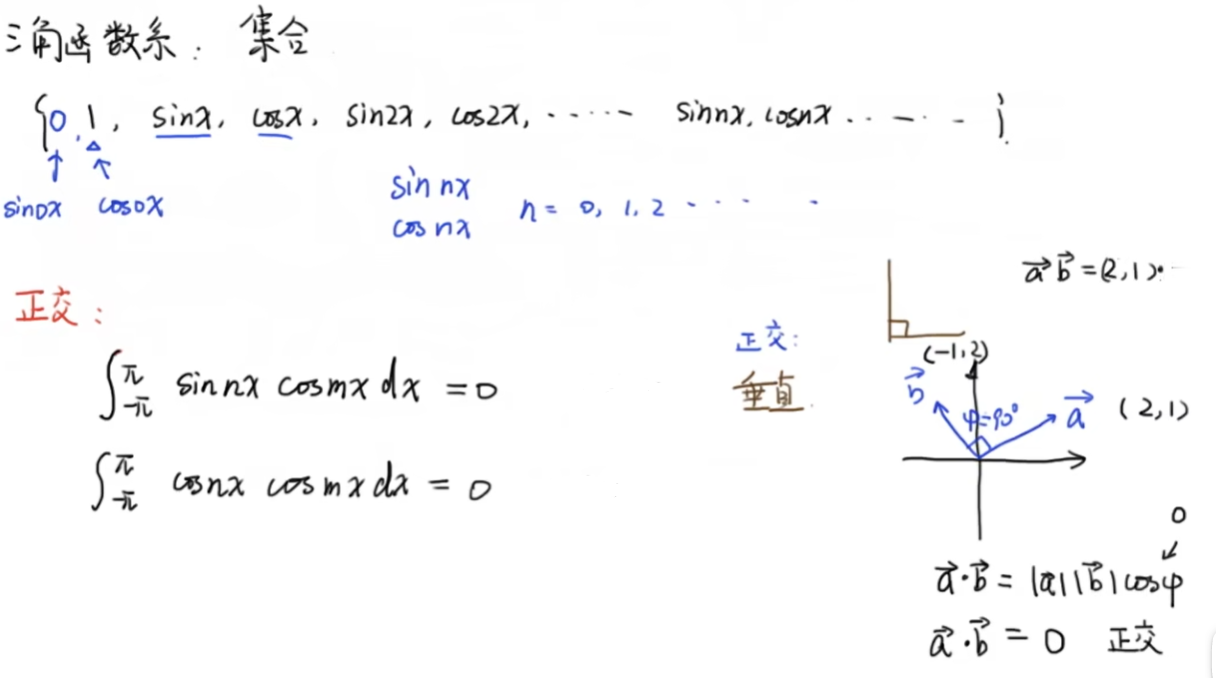 三角函数系: 集合
{0, 1, sinx, cosx, sin2x, cos2x, ······ sinnx, cosnx ······ }
sin0x cos0x
sin nx
cos nx
n = 0, 1, 2 ··· ·
正交:
∫_{-π}^{π} sinnx cosmx dx = 0
∫_{-π}^{π} cosnx cosmx dx = 0
正交:
垂直
a⃗ b⃗ = (2,1)·
(-1,2)
b⃗
φ=90°
a⃗ (2,1)
0
a⃗·b⃗ = |a⃗||b⃗|cosφ
a⃗·b⃗ = 0 正交